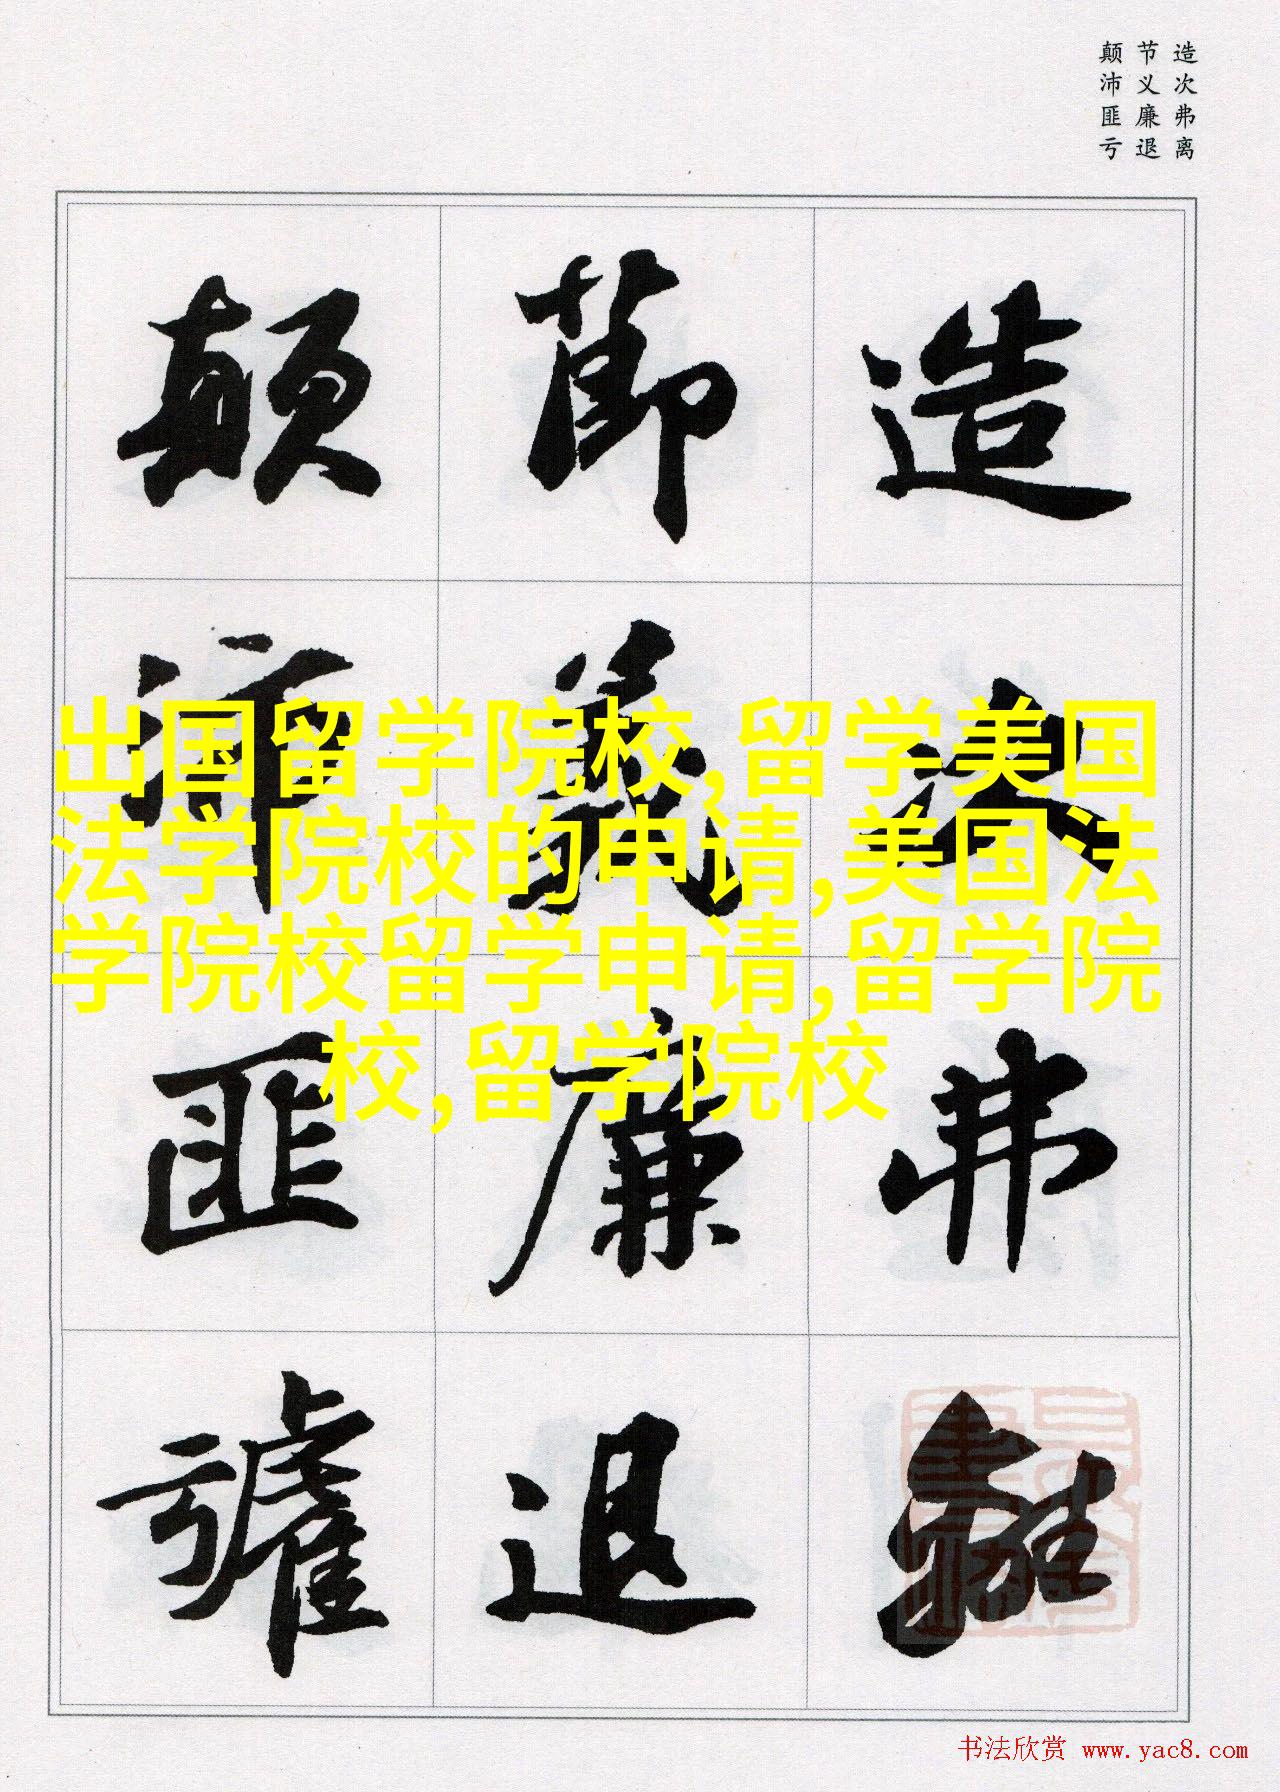 造次弗离
节义廉退
颠沛匪亏
造次弗離
節義廉退
顛沛匪虧
出国留学院校,留学美国
法学院校的申请,美国法
学院校留学申请,留学院
校,留学院校
书法欣赏 www.yac8.com